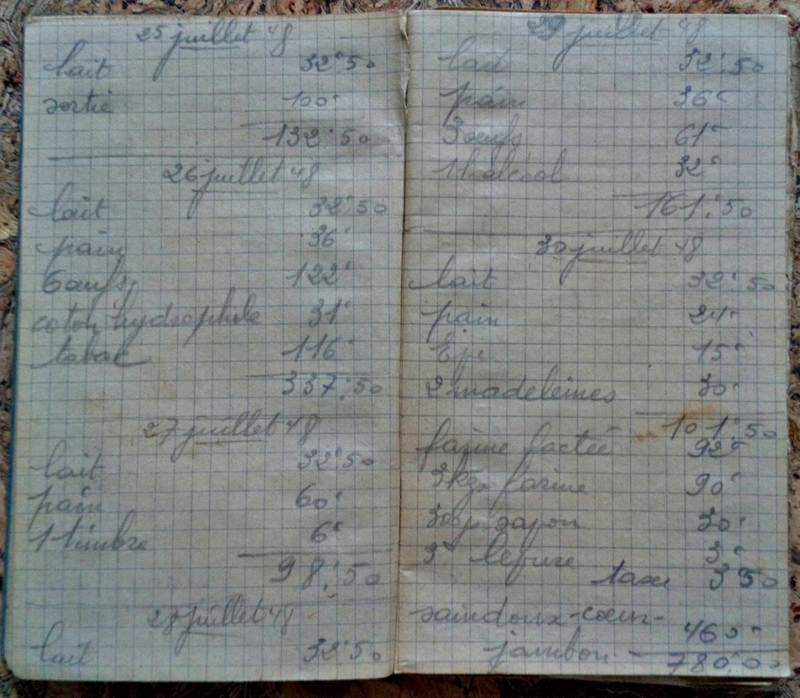 25 juillet 48
lait 32'50
sortie 100'
132'50
26 juillet 48
lait 32'50
pain 36'
6 œufs 122'
coton hydrophile 31'
tabac 116'
337'50
27 juillet 48
lait 32'50
pain 60'
1 timbre 6'
98'50
28 juillet 48
lait 32'50
29 juillet 48
lait 32'50
pain 36'
3 œufs 61'
1 l alcool 32'
161'50
30 juillet 48
lait 32'50
pain 24'
15'
2 madeleines 30'
101'50
farine lactée 92'
3 kgs farine 90'
300g savon 30'
levure 3'
taxe 3 50
saindoux-cœur-
jambon - 460'
780,00